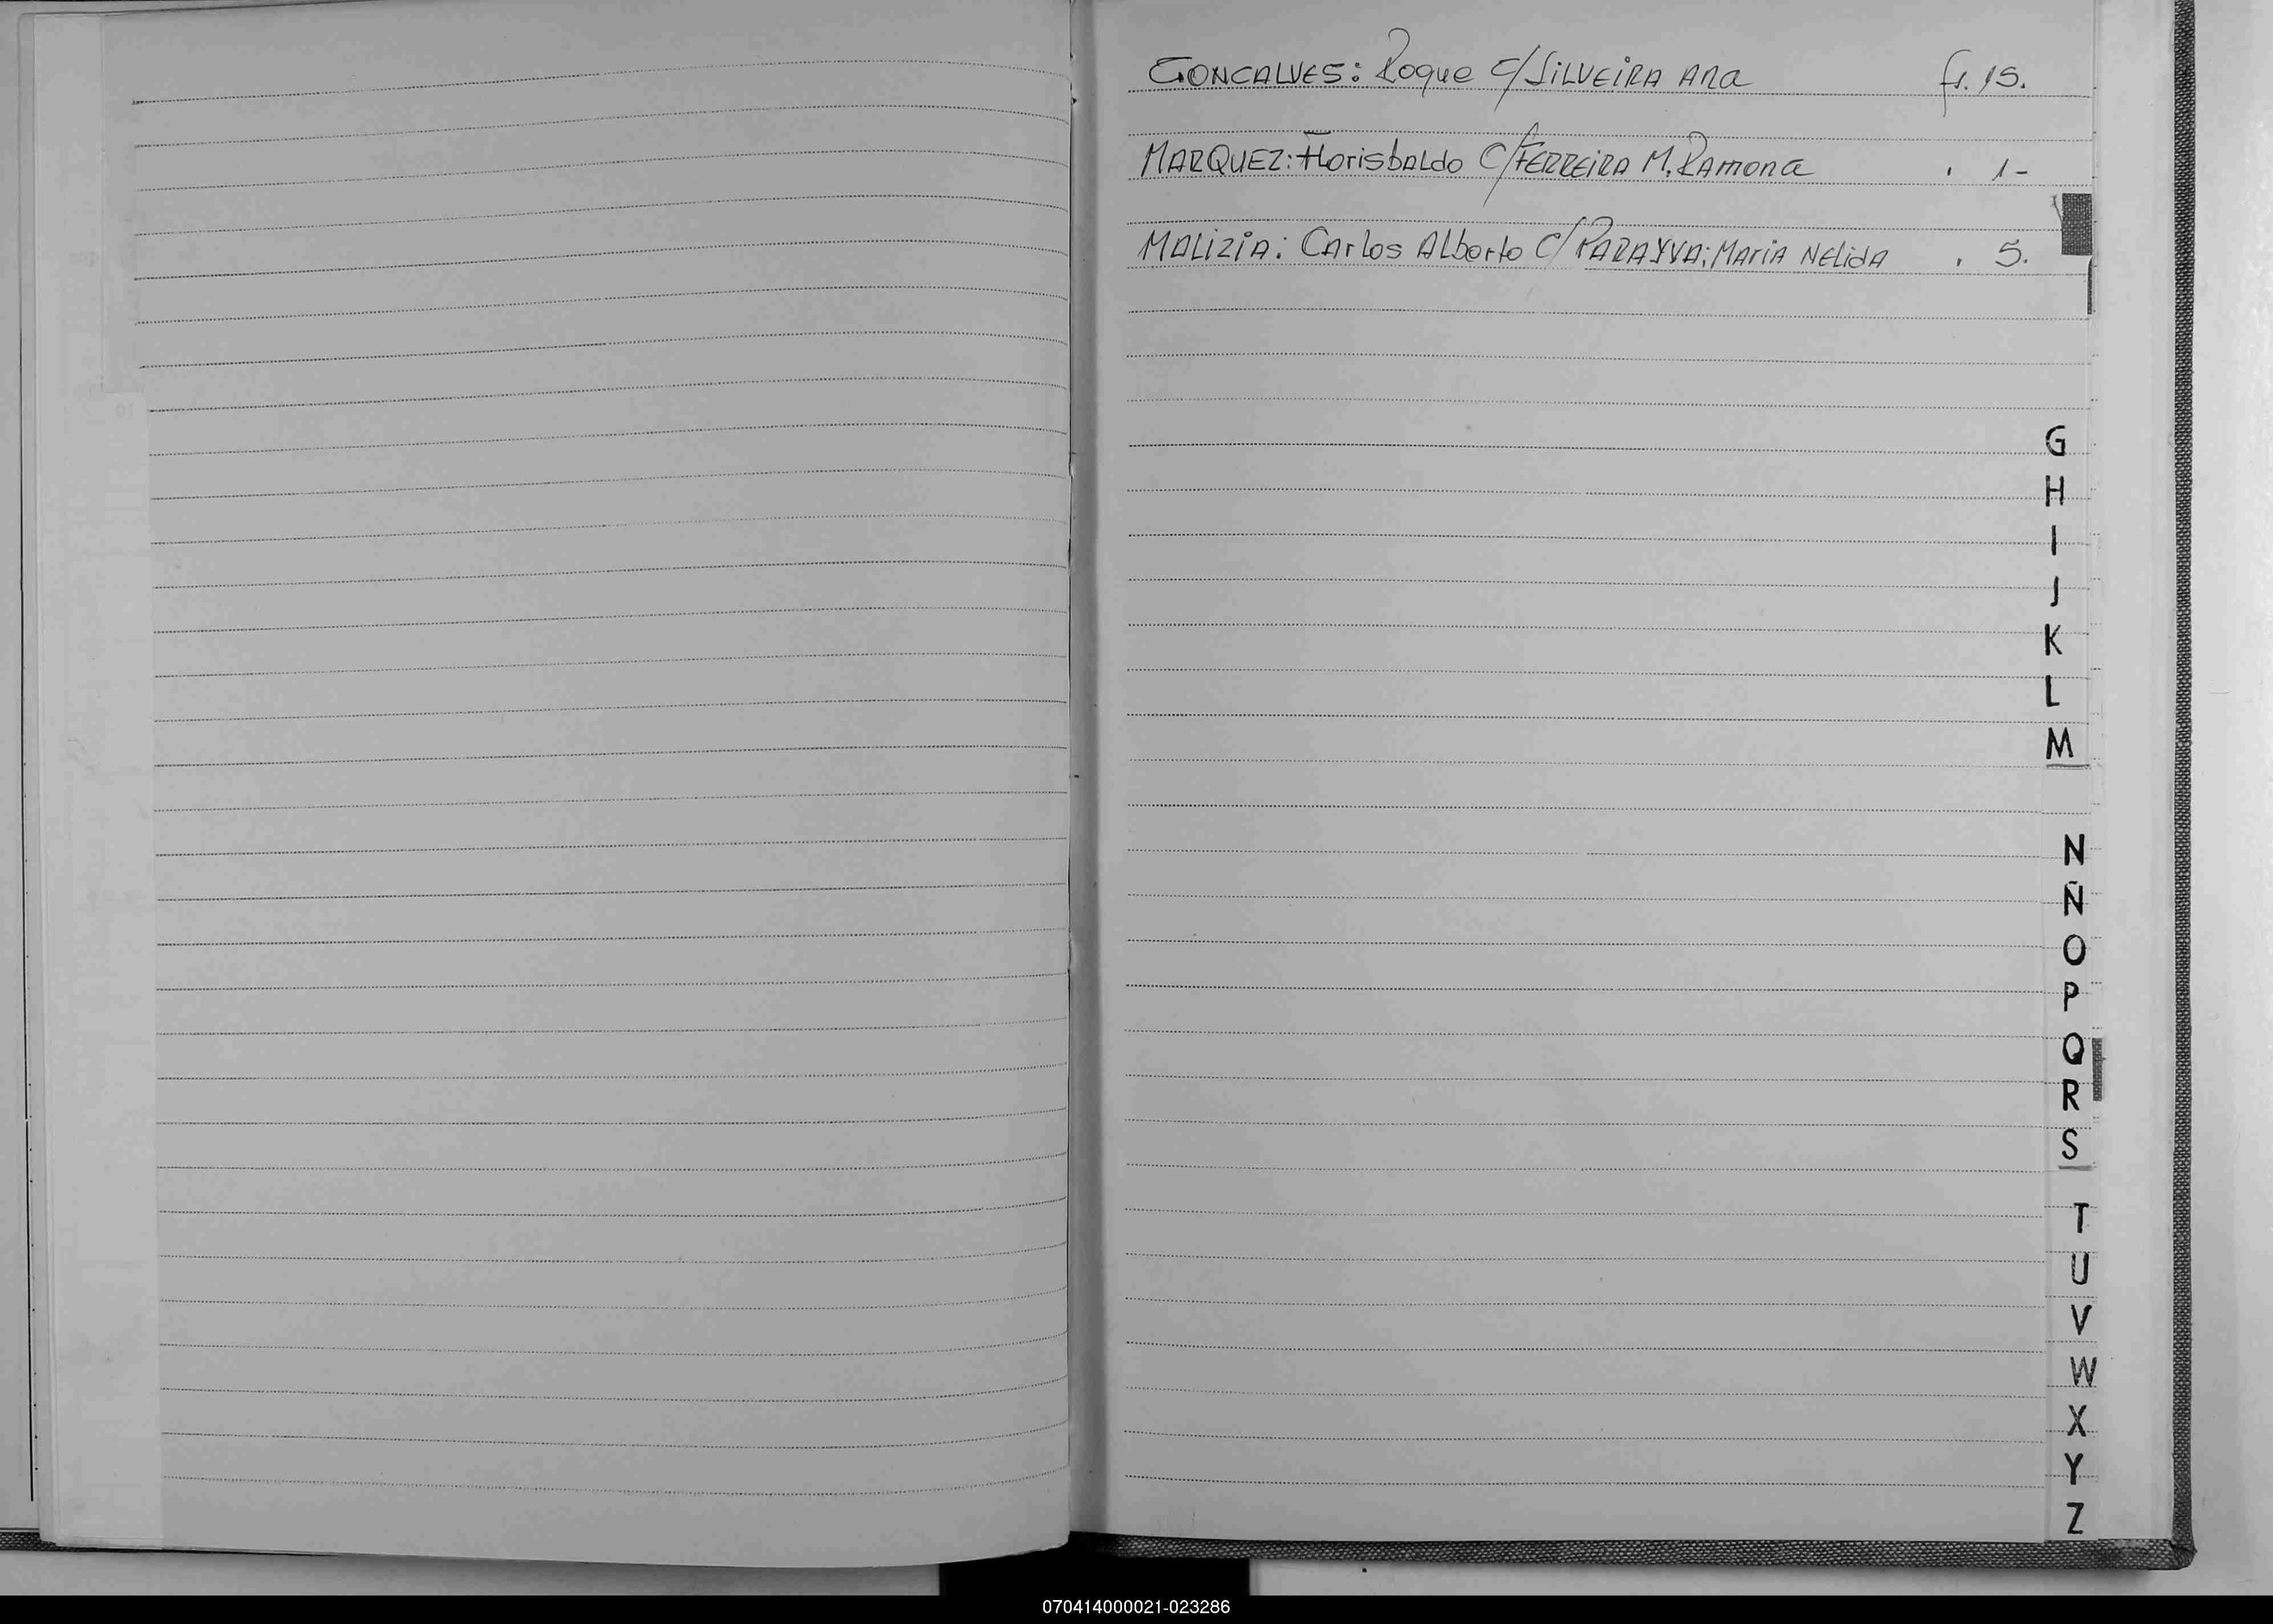 GONCALVES: Roque C/ SILVEIRA Ana fs. 15.
MARQUEZ: Florisbaldo C/ FERREIRA M. Ramona . 1-
MALIZIA: Carlos Alberto C/ PARAYVA; Maria Nelida . 5.
G
H
I
J
K
L
M
N
Ñ
O
P
Q
R
S
T
U
V
W
X
Y
Z
070414000021-023286